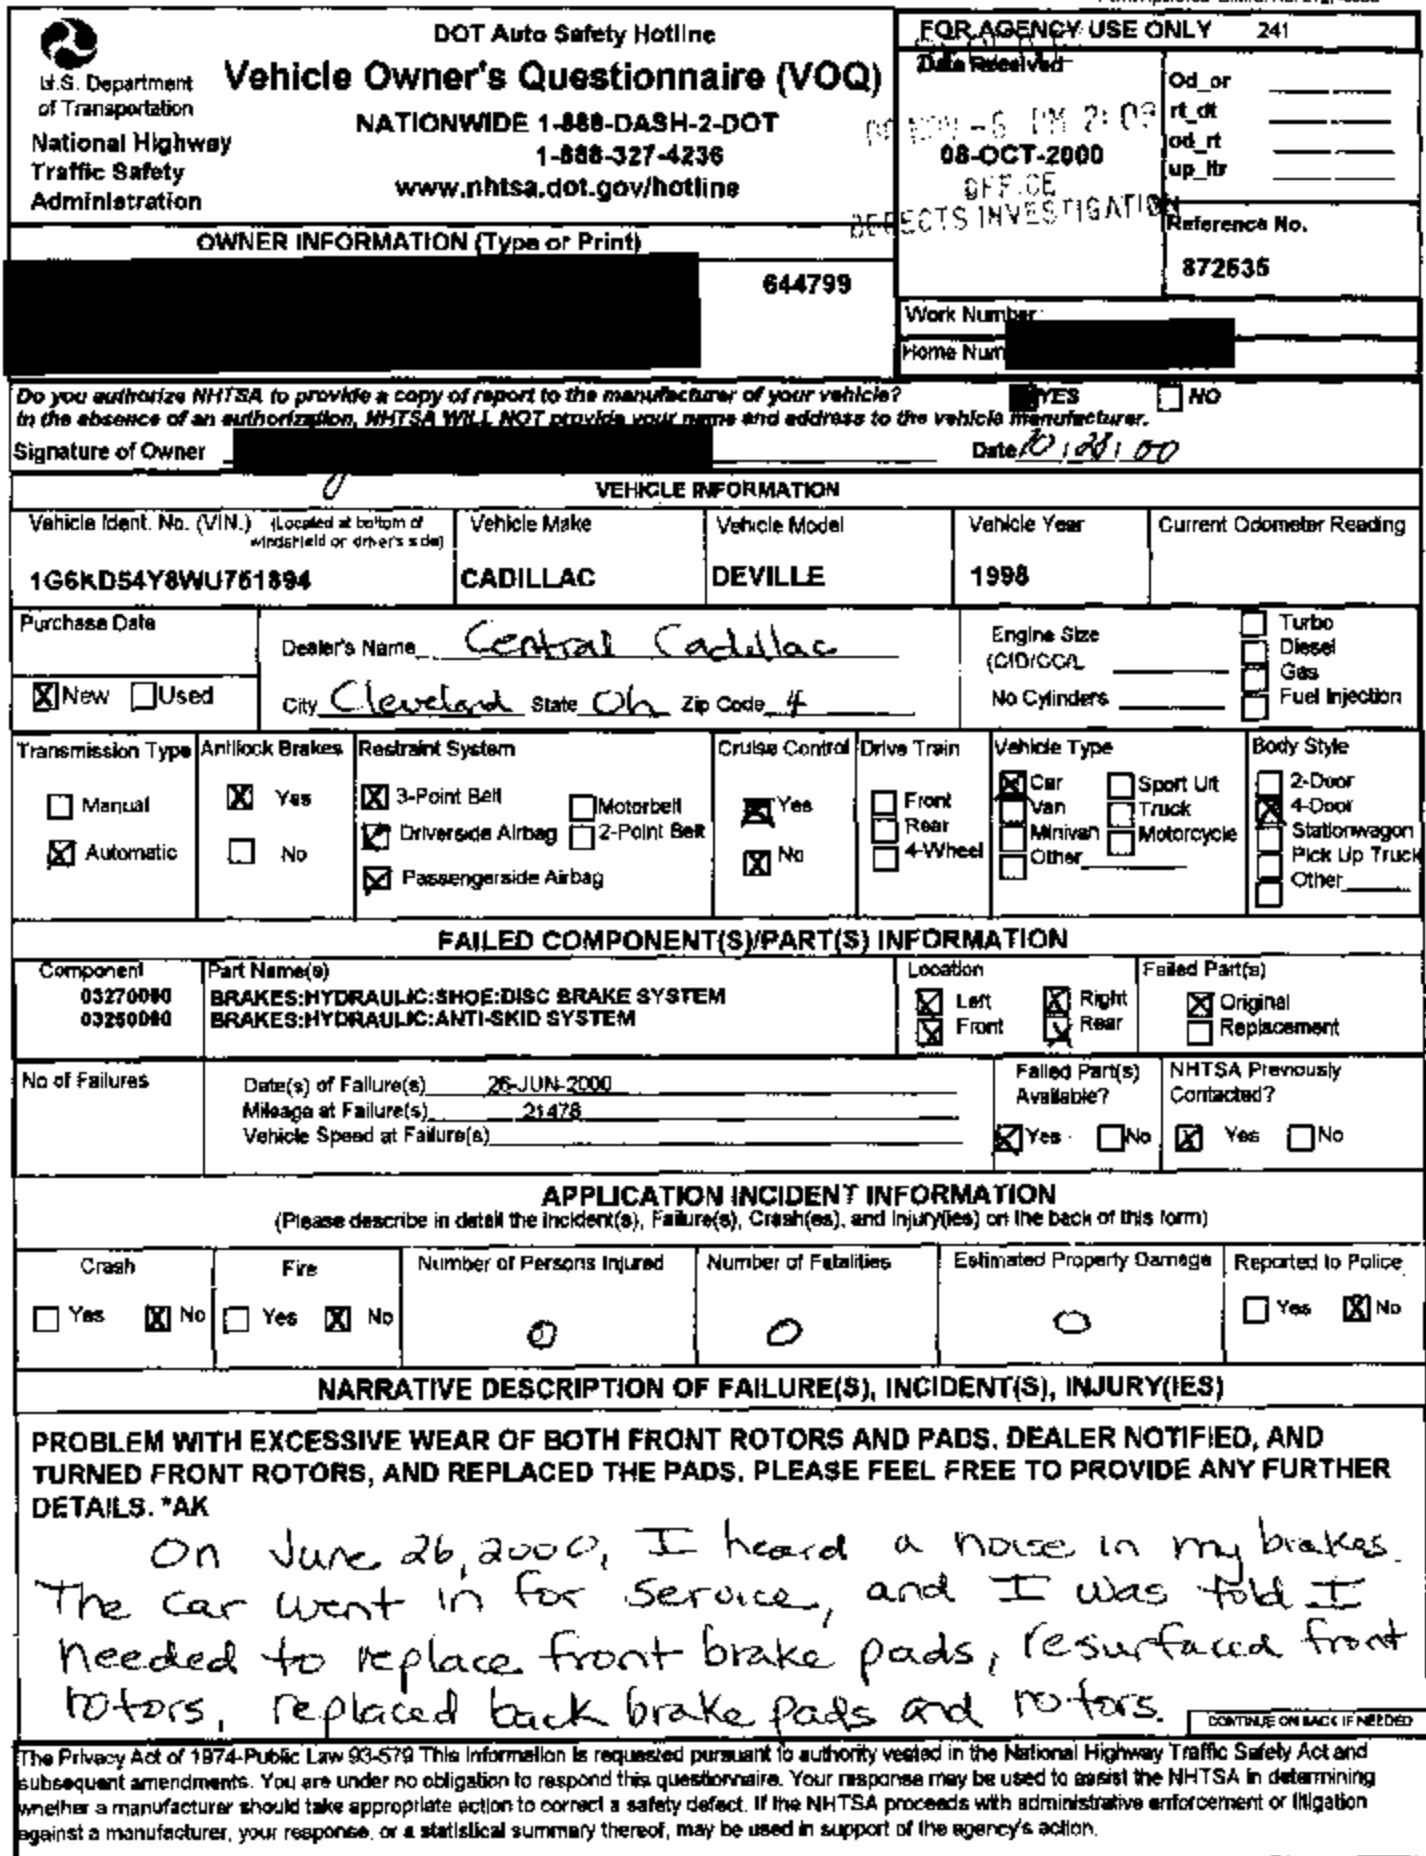 DOT Auto Safety Hotline
Vehicle Owner's Questionnaire (VOQ)
NATIONWIDE 1-888-DASH-2-DOT
1-888-327-4236
www.nhtsa.dot.gov/hotline
U.S. Department
of Transportation
National Highway
Traffic Safety
Administration
FOR AGENCY USE ONLY 241
Date Received
NOV -6 PM 2:09
08-OCT-2000
OFFICE
DEFECTS INVESTIGATION
Od_or
rt_dt
od_rt
up_ltr
Reference No.
872535
OWNER INFORMATION (Type or Print)
644799
Work Number
Home Num
Do you authorize NHTSA to provide a copy of report to the manufacturer of your vehicle? YES NO
In the absence of an authorization, NHTSA WILL NOT provide your name and address to the vehicle manufacturer.
Signature of Owner Date 10/28/00
VEHICLE INFORMATION
Vehicle Ident. No. (VIN.) (Located at bottom of
windshield or driver's side)
1G6KD54Y8WU751894
Vehicle Make
CADILLAC
Vehicle Model
DEVILLE
Vehicle Year
1998
Current Odometer Reading
Purchase Date
X New Used
Dealer's Name Central Cadillac
City Cleveland State Oh Zip Code 4
Engine Size
(CID/CC/L
No Cylinders
Turbo
Diesel
Gas
Fuel Injection
Transmission Type
Manual
X Automatic
Antilock Brakes
X Yes
No
Restraint System
X 3-Point Belt
Driverside Airbag
Passengerside Airbag
Motorbelt
2-Point Belt
Cruise Control
Yes
X No
Drive Train
Front
Rear
4-Wheel
Vehicle Type
X Car
Van
Minivan
Other
Sport Ut
Truck
Motorcycle
Body Style
2-Door
X 4-Door
Stationwagon
Pick Up Truck
Other
FAILED COMPONENT(S)/PART(S) INFORMATION
Component
03270000
03250000
Part Name(s)
BRAKES:HYDRAULIC:SHOE:DISC BRAKE SYSTEM
BRAKES:HYDRAULIC:ANTI-SKID SYSTEM
Location
X Left X Right
X Front X Rear
Failed Part(s)
X Original
Replacement
No of Failures
Date(s) of Failure(s) 26-JUN-2000
Mileage at Failure(s) 21478
Vehicle Speed at Failure(s)
Failed Part(s)
Available?
X Yes No
NHTSA Previously
Contacted?
X Yes No
APPLICATION INCIDENT INFORMATION
(Please describe in detail the incident(s), Failure(s), Crash(es), and Injury(ies) on the back of this form)
Crash
Yes X No
Fire
Yes X No
Number of Persons Injured
0
Number of Fatalities
0
Estimated Property Damage
0
Reported to Police
Yes X No
NARRATIVE DESCRIPTION OF FAILURE(S), INCIDENT(S), INJURY(IES)
PROBLEM WITH EXCESSIVE WEAR OF BOTH FRONT ROTORS AND PADS. DEALER NOTIFIED, AND
TURNED FRONT ROTORS, AND REPLACED THE PADS. PLEASE FEEL FREE TO PROVIDE ANY FURTHER
DETAILS. *AK
On June 26, 2000, I heard a noise in my brakes.
The car went in for service, and I was told I
needed to replace front brake pads, resurfaced front
rotors, replaced back brake pads and rotors.
CONTINUE ON BACK IF NEEDED
The Privacy Act of 1974-Public Law 93-579 This information is requested pursuant to authority vested in the National Highway Traffic Safety Act and
subsequent amendments. You are under no obligation to respond this questionnaire. Your response may be used to assist the NHTSA in determining
whether a manufacturer should take appropriate action to correct a safety defect. If the NHTSA proceeds with administrative enforcement or litigation
against a manufacturer, your response, or a statistical summary thereof, may be used in support of the agency's action.